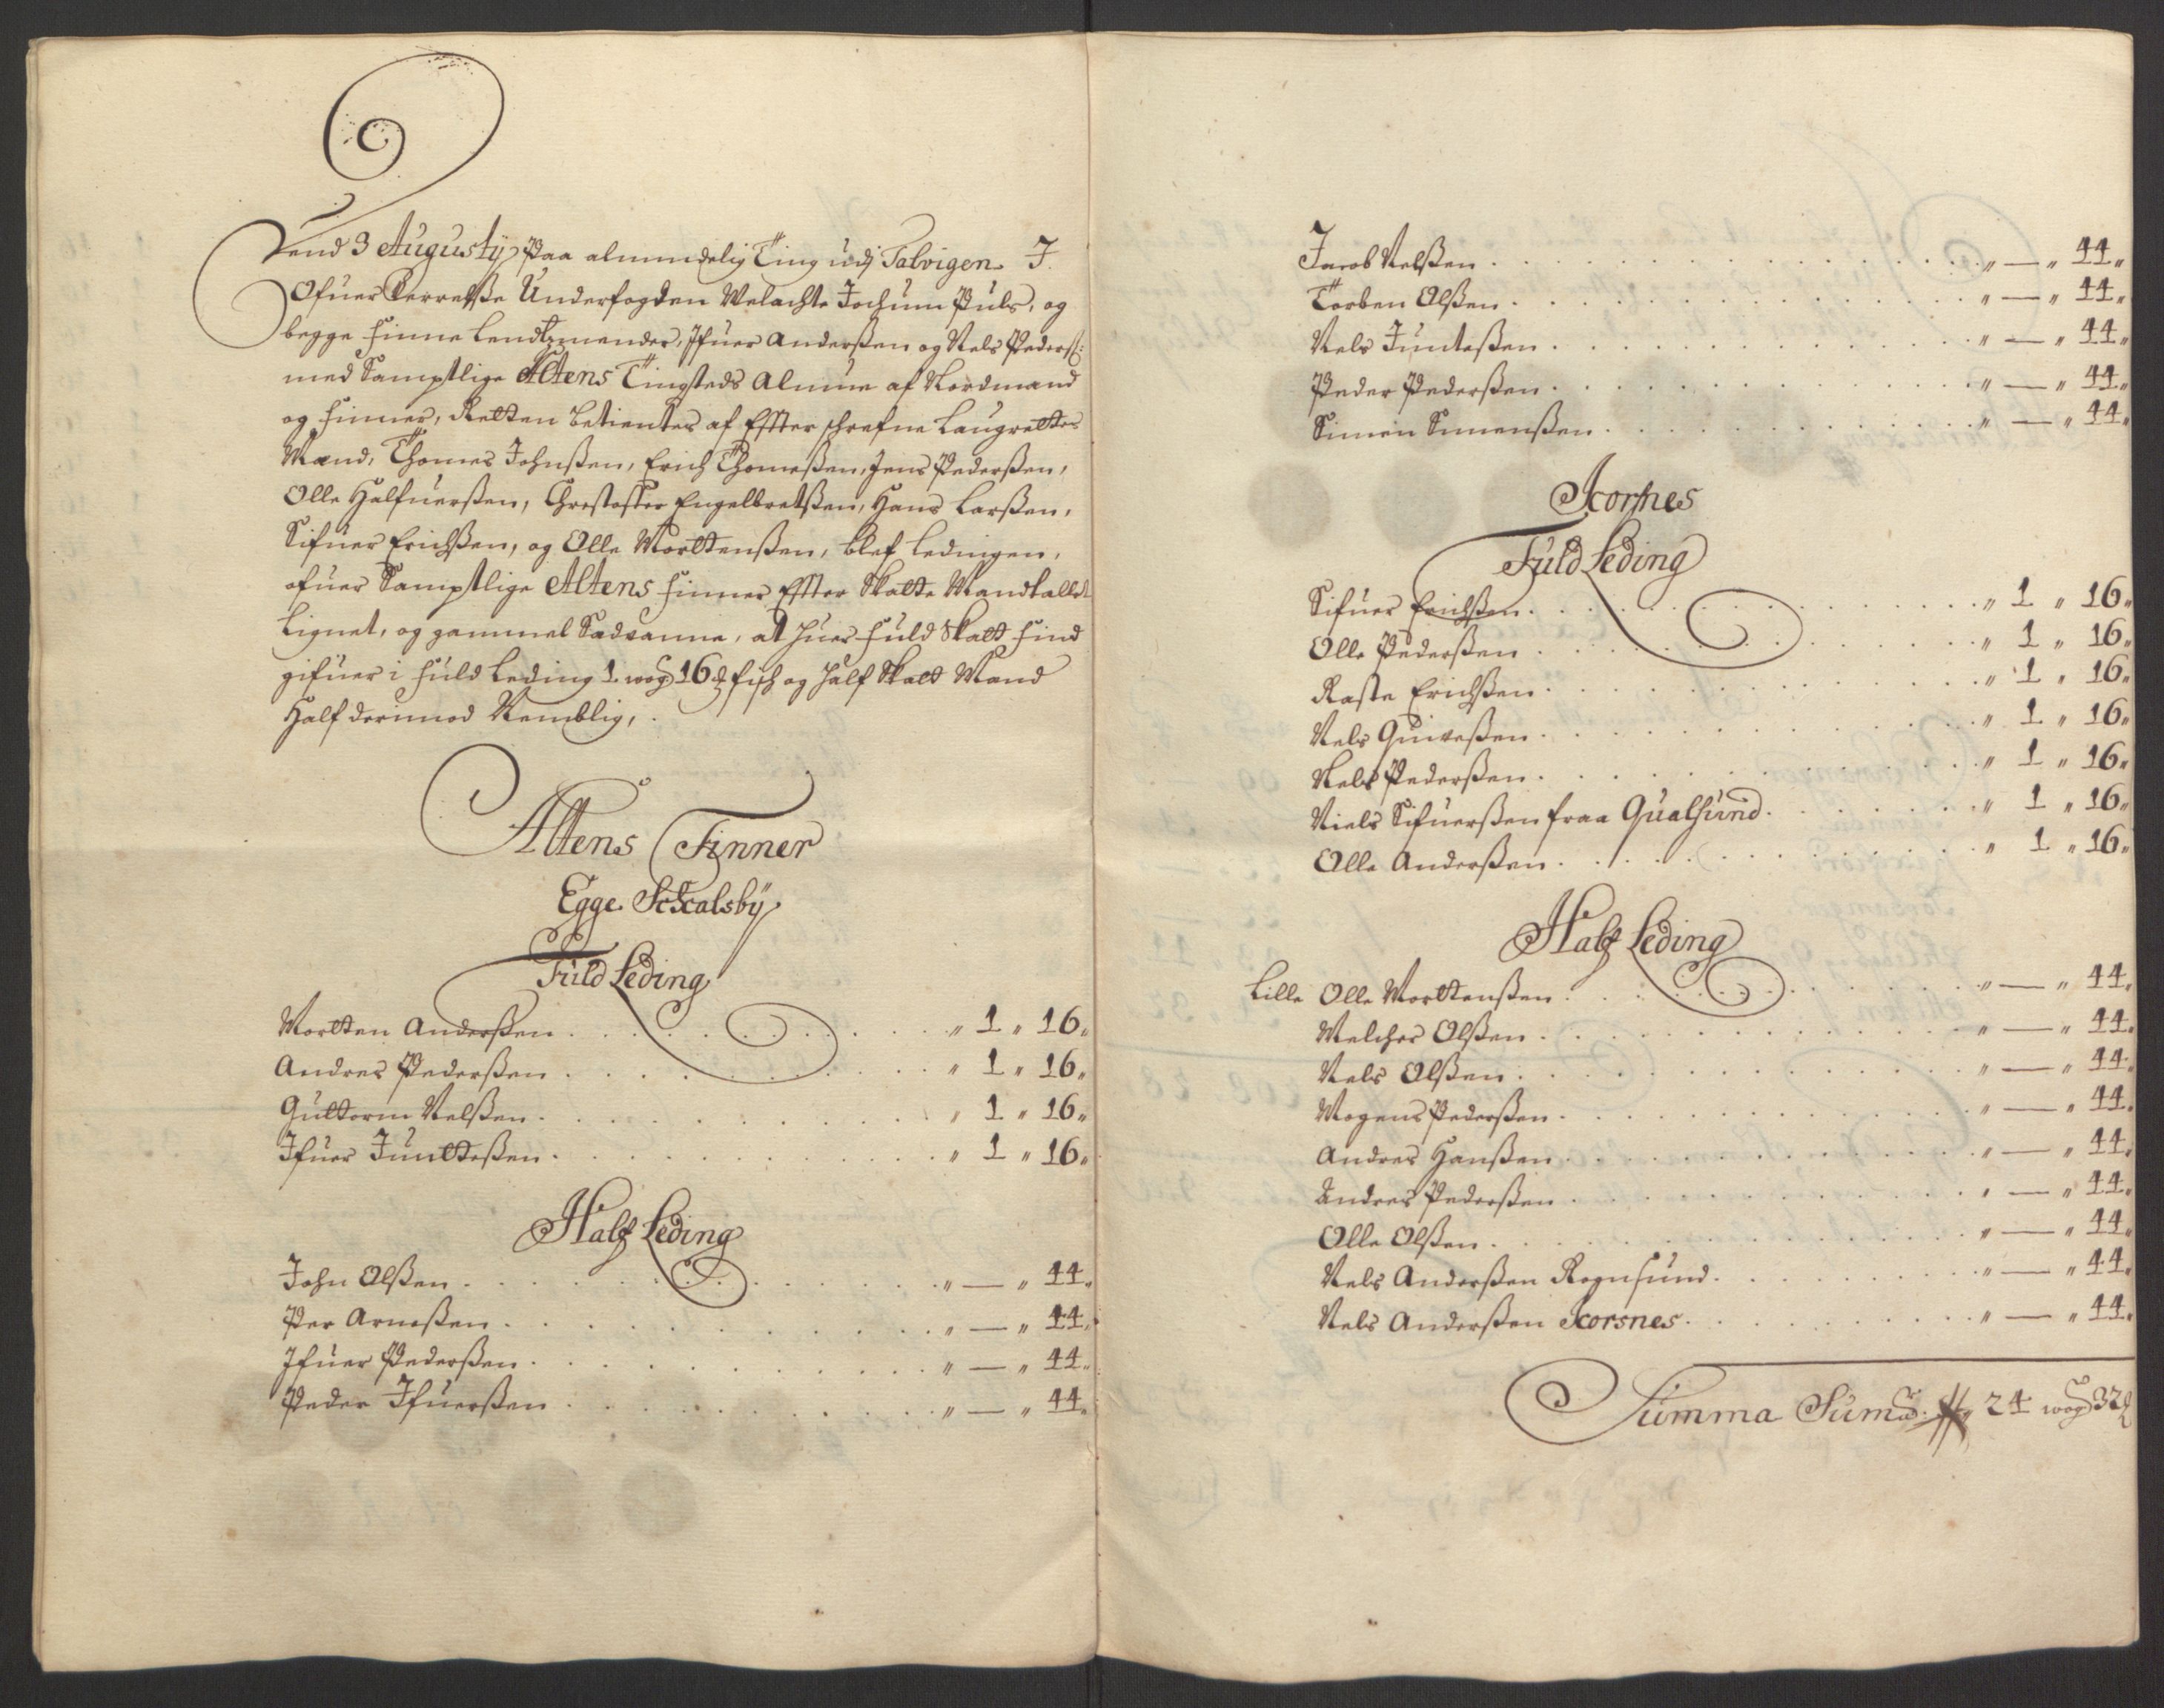 Dend 3 Augustÿ Paa almindelig Ting udj Talvigen. J.
Ofuer Verrelse Underfogden Welachte Jochum Puls, og
begge finne Lendtzmender, Ifuer Anderßen og Nels Peders:
med Samptlige Altens Tingsteds Almue af Nordmænd
og finner, Retten betientes af Effter schrefne Laugrettes
Mænd, Thomes Johnßen, Erich Thomeßen, Jens Pederßen,
Olle Halfuerßen, Chrestoffer Engelbretßen, Hans Larßen,
Sifuer Erichßen, og Olle Morttenßen, blef Ledingen,
ofuer Samptlige Altens finner Effter Skatte Mandtallet
Lignet, og gammel Sædvanne, at huer fuld Skatt find
gifuer i fuld Leding 1. wog 16 ℔ fisk og half Skatt Mand
Half derimod Nemblig,
Altens Finner
Egge Schalsbÿ
Fuld Leding
Mortten Anderßen . . . „ 1 „ 16„
Andres Pederßen . . . „ 1 „ 16„
Guttorm Nelßen . . . „ 1 „ 16„
Ifuer Juntteßen . . . „ 1 „ 16„
Half Leding
John Olßen . . . „ — „ 44„
Per Arneßen . . . „ — „ 44„
Ifuer Pederßen . . . „ — „ 44„
Peder Ifuerßen . . . „ — „ 44„
Jacob Nelßen . . . „ — „ 44„
Torben Olßen . . . „ — „ 44„
Nels Junteßen . . . „ — „ 44„
Peder Pederßen . . . „ — „ 44„
Simen Simenßen . . . „ — „ 44„
Korsnes
Fuld Leding
Sifuer Erichßen . . . „ 1 „ 16„
Olle Pederßen . . . „ 1 „ 16„
Raste Erichßen . . . „ 1 „ 16„
Nels Quiveßen . . . „ 1 „ 16„
Nels Pederßen . . . „ 1 „ 16„
Niels Sifuerßen fraa Qualsund . . . „ 1 „ 16„
Olle Anderßen . . . „ 1 „ 16„
Half Leding
Lille Olle Morttenßen . . . „ — „ 44„
Melcher Olßen . . . „ — „ 44„
Nels Olßen . . . „ — „ 44„
Mogens Pederßen . . . „ — „ 44„
Andres Hanßen . . . „ — „ 44„
Andres Pederßen . . . „ — „ 44„
Olle Olßen . . . „ — „ 44„
Nels Anderßen Rognsund . . . „ — „ 44„
Nels Anderßen Korsnes . . . „ — „ 44„
Summa Sum̄ar. 24 wog 32 ℔